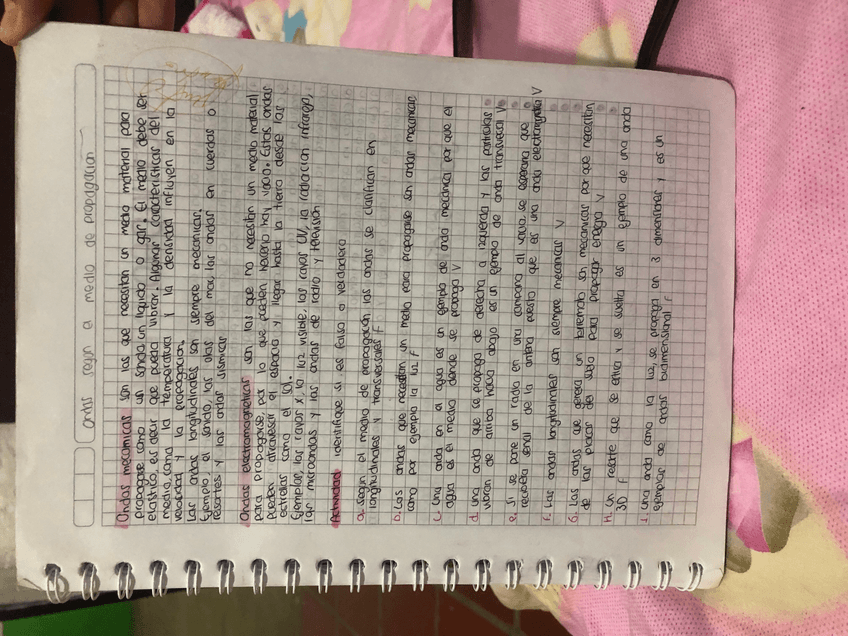 Ondas según el medio de propagación
Ondas mecánicas son las que necesitan un medio material para
propagarse como un solido, un liquido o gas. El medio debe ser
elastico, es decir que pueda vibrar. Algunas características del
medio, como la temperatura y la densidad influyen en la
velocidad y la propagación.
Las ondas longitudinales son siempre mecanicas.
Ejemplo, el sonido, las olas del mar, las ondas en cuerdas o
resortes y las ondas sismicas
Ondas electromagneticas son las que no necesitan un medio material
para propagarse, por lo que pueden hacerlo hay vacio. Estas ondas
pueden atravesar el espacio y llegar hasta la tierra desde las
estrellas como el sol.
Ejemplos, los rayos x, la luz visible, los rayos UV, la radiacion infraroja,
las microondas y las ondas de radio y television
Actividad identifique si es falso o verdadero
a. según el medio de propagación las ondas se clasifican en
longitudinales y transversales F
b. Las ondas que necesitan un medio para propagarse son ondas mecanicas
como por ejemplo la luz F
c. Una onda en el agua es un ejemplo de onda mecánica por que el
agua es el medio donde se propaga V
d. una onda que se propaga de derecha a izquierda y las particulas
vibran de arriba hacia abajo es un ejemplo de onda transversal V
e. Si se pone un radio en una campana al vacio, se esperaria que
recibiera señal de la antena puesto que es una onda electromagnética V
F. Las ondas longitudinales son siempre mecanicas V
G. Las ondas que genera un terremoto son mecanicas por que necesitan
de las placas del suelo para propagar energia V
H. un resorte que se estira y se suelta es un ejemplo de una onda
3D F
I. una onda como la luz, se propaga en 3 dimensiones y es un
ejemplar de ondas bidimensional F